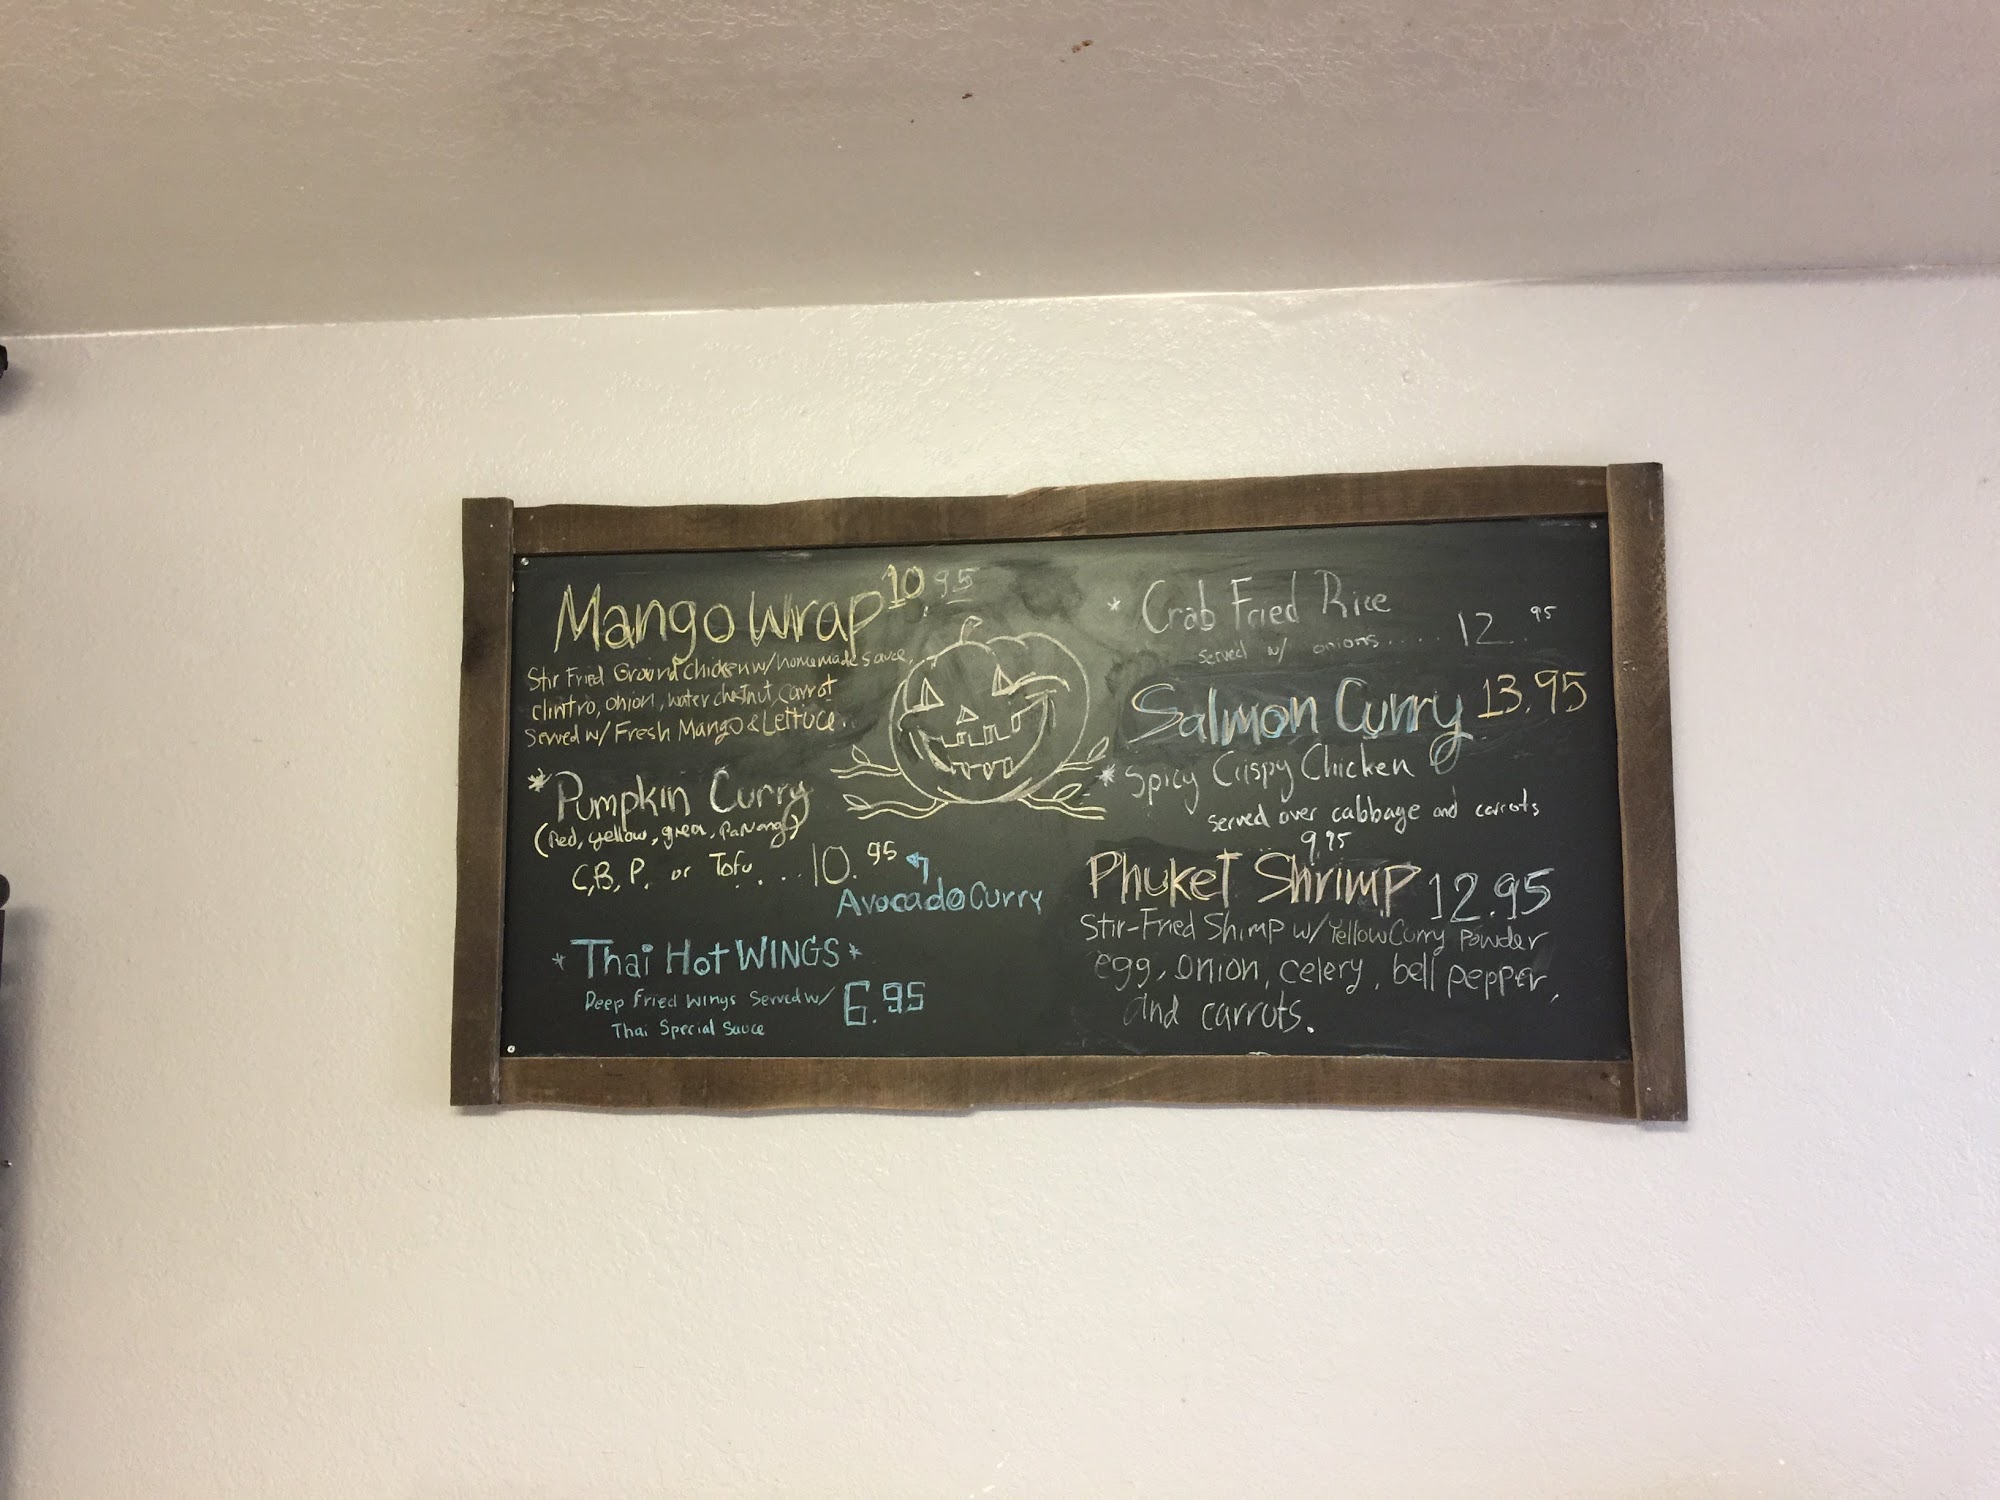 Mango Wrap 10.95
Stir Fried Ground Chicken w/ homemade sauce,
clintro, onion, water chestnut, carrot
Served w/ Fresh Mango & Lettuce.
*Pumpkin Curry
(Red, yellow, green, Panang)
C, B, P. or Tofu.... 10.95
Avocado Curry
*Thai Hot WINGS*
Deep Fried wings Served w/ 6.95
Thai Special Sauce
* Crab Fried Rice
served w/ onions..... 12.95
Salmon Curry 13.95
* Spicy Crispy Chicken
served over cabbage and carrots
9.95
Phuket Shrimp 12.95
Stir-Fried Shimp w/ Yellow Curry Powder
egg, onion, celery, bell pepper,
and carrots.